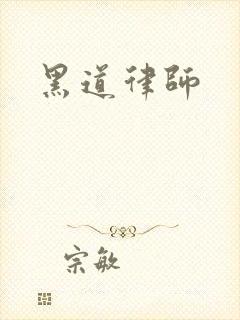 黑道律師
宗敏